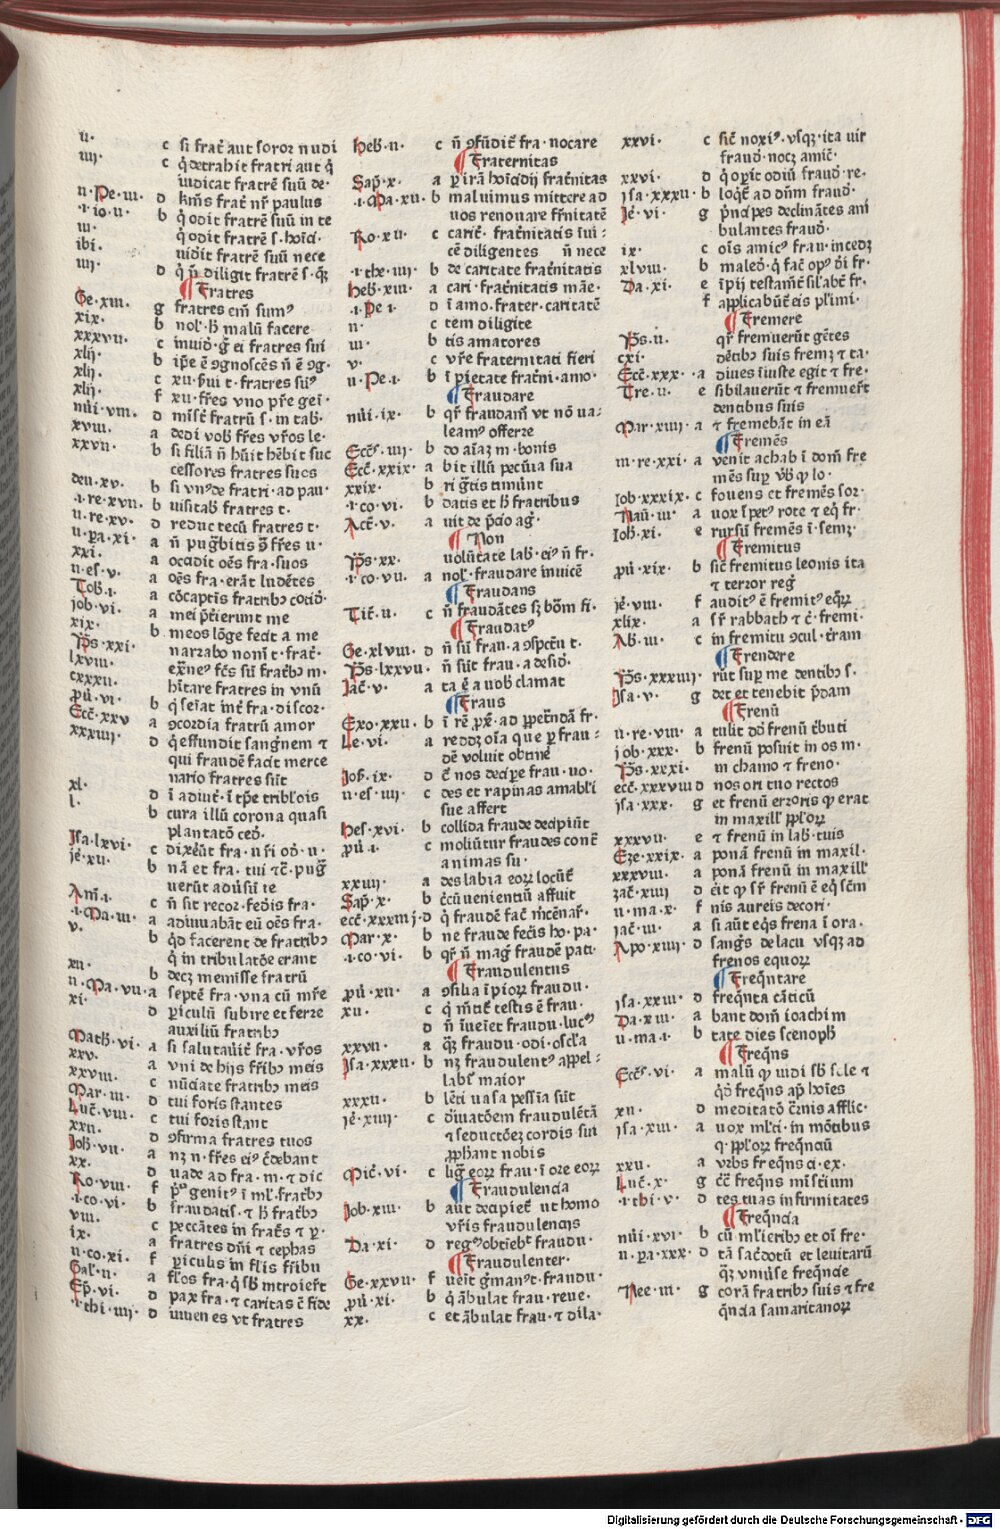 ii· c si frat̃ aut soror nudi
iiij· c q̇ detrahit fratri aut q̇
iudicat fratrē suū de·
ii·Pe·iii· d km̃s frat̃ nr̃ paulus
·i·io·ii· b q̇ odit fratrē suū in te
iii· q̇ odit fratrē s·hoīci·
ibi· uidit fratrē suū nece
iiij· d q̇ ñ diligit fratrē s·qꝫ
¶ Fratres
Ge·xiii· g fratres em̃ sumꝰ
xix· b nol·h̄ malū facere
xxxvii· c inuid·g̃ ei fratres sui
xlij· b ip̄e ē ꝯgnoscēs ñ ē ꝯg·
xlij· c xii·ẜui t·fratres suꝰ
xlij· f xii·fr̃es vno pr̃e gei·
nūi·viii· d misit̃ fratrū s·in tab·
xviii· a dedi vob fr̃es vr̃os le·
xxvii· b si filiā ñ hūit hēbit suc
cessores fratres suos
deu·xv· b si vnꝰde fratri·ad pau·
·i·re·xvii· b uisitab fratres t·
ii·re·xv· d reduc tecū fratres t·
ii·pa·xi· a ñ pug̃bitis ꝯ̃ fr̃es u·
xxi· a occidit oēs fra·suos
ii·es·v· a oēs fra·erāt ludētes
Tob·i· a cōcaptīs fratribꝫ cotid·
iob·vi· a mei p̃t̃ierunt me
xix· b meos lōge fecit a me
Ps̄·xxi· narrabo nom̃ t·frat̃·
lxviii· ex̃neꝰ fc̃s sū frat̃bꝫ m·
cxxxii· h̃itare fratres in vnū
ꝓū·vi· b q̇ seīat int̃ fra·discor·
Ecc̃·xxv a ꝯcordia fratrū amor
xxxiiij· d q̇ effundit sang̃nem ⁊
qui fraudē facit merce
nario fratres sūt
xl· d ī adiut̃·ī tp̄e trib̃lois
l· b circa illū corona quasi
plantatō ced·
Jsa·lxvi· c dixer̃ūt fra·nr̃i od·u·
je·xii· b nā et fra·tui ⁊c̃·pug̃
uerūt adūsū te
Am̃·i· c ñ sit recor·fed̃is fra·
·i·Ma·iii· a adiuuabāt eū oēs fra·
v· b q̇d facerent de fratribꝫ
q̇ in tribulatōe erant
xii· b decꝫ menisse fratrū
ii·Ma·vii· a septē fra·vna cū mr̃e
xi· d p̱iculū subire et ferre
auxiliū fratribꝫ
Math̃·vi· a si salutauit̃ fra·vr̃os
xxv· a vni de hijs fr̃ibꝫ meis
xxviii· c nūciate fratribꝫ meis
Mar·iii· d tui foris stantes
Luc̃·viii· c tui foris stant
xxii· d ꝯfirma fratres tuos
Joh̃·vii· a nꝫ n·fr̃es eiꝰ c̃debant
xx· d uade ad fra·m·⁊ dic
Ro·viii· f p̃ꝰ genitꝰ ī ml̃·frat̃bꝫ
·i·co·vi· b fraudatis·⁊ h̄ frat̃bꝫ
viii· c peccātes in frat̃s ⁊ p̱·
ix· a fratres dn̄i ⁊ cephas
ii·co·xi· f p̱iculis in fl̃is fr̃ibu
Gal·ii· a fl̃os fra·q̇ sb̄ introier̃t
Ep̄·vi· d pax fra·⁊ caritas c̃ fide
·i·thi·iiij· d iuuenes vt fratres
Heb̃·ii· c ñ ꝯfūdit̃ fra·uocare
¶ Fraternitas
Sap̄·x· a p̱ irā hoīcidij frat̃nitas
·i·Ma·xii· b maluimus mittere ad
uos renouare fr̃nitatē
Ro·xii· c carit̃·frat̃nitatis īui⸗
cē diligentes ñ nece
·i·the·iiij· b de caritate frat̃nitatis
Heb̃·xiii· a cari·frat̃nitatis māe·
·i·Pe·i· d ī amo·frater·caritatē
ii· c tem diligite
iii· b tis amatores
v· c vr̃e fraternitati fieri
ii·Pe·i· b ī pietate frat̃ni·amo·
¶ Fraudare
nūi·ix· b qr̃ fraudam̃ vt nō ua⸗
leamꝰ offerre
Ecc̃s·iiij· b do aīaꝫ m·bonis
Ecc̃·xxix· a bit illū pecūia sua
xxix· b ri g̃tis timūnt
·i·co·vi· b datis et h̄ fratribus
Ac̃t·v· a uit de p̃cio ag̃·
¶ Non
Ps̄·xx· uolūtate lab·eiꝰ ñ fr·
·i·co·vii· a nol·fraudare inuicē
¶ Fraudans
Tit̃·ii· c ñ fraudātes sꝫ bōm fi·
¶ Fraudatꝰ
Ge·xlviii· d ñ sū frau·a ꝯspectu t·
Ps̄·lxxvii· ñ sūt frau·a desid·
Jac̃·v· a ta ē a uob clamat
¶ Fraus
Exo·xxii· b ī rē pxi̱·ad ꝑpet̃ndā fr·
Le·vi· a reddꝫ oīa que p̱ frau⸗
dē voluit obtine
Job·ix· d c̃ nos decip̱e frau·uo·
ii·es·iiij· c des et rapinas amabl̃i
sue affert
Hes̃·xvi· b callida fraude decipiūt
ꝓū·i· c moliūtur fraudes cont̃
animas su·
xxiiij· a des labia eoꝝ locūt̃
Sap̄·x· b c̃cūuenientiū affuit
ecc̃·xxxiiij· d q̇ fraudē fac̃ m̃cēnar̃·
Mar·x· b ne fraude fec̃is ho·pa·
·i·co·vi· b qr̃ ñ mag̃ fraudē pati·
¶ Fraudulentus
ꝓū·xii· a ꝯsilia īpioꝝ fraudu·
xii· c q̇ m̃tit̃ testis ē frau·
d ñ īueiet̃ fraudu·lucꝰ
xxvii· a qꝫ fraudu·odi·oscl̃a
Jsa·xxxii· b nꝫ fraudulentꝰ appel⸗
labt̃ maior
xxxii· b lēti uasa pessīa sūt
je·xiiij· c diuatōem fraudulētā
⁊ seductōeꝫ cordis sui
ꝓph̃ant nobis
Mic̃·vi· c lig̃ eoꝝ frau·ī ore eoꝝ
¶ Fraudulencia
Job·xiii· b aut decipiet̃ ut homo
vr̃is fraudulenciis
Da·xi· d regꝰobtiēbt̃ fraudu·
¶ Fraudulenter·
Ge·xxvii· f ueīt g̃manꝰt·fraudu·
ꝓū·xi· b q̇ ābulat frau·reue·
xx· c et ābulat frau·⁊ dila·
xxvi· c sic̃ noxiꝰ·vsqꝫ·ita uir
fraud·nocꝫ amic̃·
xxvi· d q̇ op̱it odiū fraud·re·
jsa·xxxii· b loqt̃ ad dn̄m fraud·
Je·vi· g p̃ncipes declinātes ani
bulantes fraud·
ix· c oīs amicꝰ frau·incedꝫ
xlviii· b maled·q̇ fac̃ opꝰ dī fr·
Da·xi· e īpij testam̃t sīlabt̃ fr·
f applicabūt̃ eis pl̃imi·
¶ Fremere
Ps̄·ii· qr̃ fremuerūt gētes
cxi· dētibꝫ suis fremꝫ ⁊ ta·
Ecc̃·xxx· a diues īiuste egit ⁊ fre·
Tre·ii· e sibilauerūt ⁊ fremuer̃t
dentibus suis
Mar·xiiij· a ⁊ fremebāt in eā
¶ Fremēs
iii·re·xxi· a venit achab ī dom̃ fre
mēs sup̱ v̄b ꝙ lo·
Job·xxxix· c fouens et fremēs sor·
Naū·iii· a uox īpetꝰ rote ⁊ eq̇ fr·
Job·xi· e rursū fremēs ī·semꝫ·
¶ Fremitus
ꝓū·xix· b sic̃ fremitus leonis ita
⁊ terror reg̃
je·viii· f auditꝰ ē fremitꝰ eq̃ꝝ
xlix· a sr̃ rabbath ⁊ c̃·fremi·
Ab·iii· c in fremitu ꝯcul·t̃ram
¶ Frendere
Ps̄·xxxiiij· rūt sup̱ me dentibꝫ s·
Jsa·v· g det et tenebit p̃dam
¶ Frenū
ii·re·viii· a tulit dd̃ frenū t̃buti
job·xxx· b frenū posuit in os m·
Ps̄·xxxi· in chamo ⁊ freno·
ecc̃·xxxviii d nos ori tuo rectos
jsa·xxx· g et frenū erroris ꝙ erat
in maxill̃ ꝓpl̃oꝝ
xxxvii· e ⁊ frenū in lab·tuis
Eze·xxix· a ponā frenū in maxil·
xxxviii· a ponā frenū in maxill̃
zac̃·xiiij d eīt ꝙ sr̃ frenū ē eq̇ sc̃m
ii·ma·x· f nis aureis decori·
jac̃·iii· a si aūt eq̇s frena ī ora·
Apo·xiiij· d sang̃s de lacu vsqꝫ ad
frenos equoꝝ
¶ Freq̃ntare
jsa·xxiii· d freq̃nta cāticū
Da·xiii· a bant dom̃ ioachim
ii·ma·i· b tate dies scenoph̃
¶ Freq̃ns
Ecc̃s·vi· a malū ꝙ uidi sb̄ sole ⁊
q̇d freq̃ns ap̄ hoīes
xii· d meditatō c̃nis afflic·
jsa·xiii· a uox ml̃ti·in mōtibus
q·ꝓpl̃oꝝ freq̃nciū
xxii· a vrbs freq̃ns ci·ex·
Luc̃·x· g c̃c̃ freq̃ns mīsteriū
·i·thi·v· d tes tuas infirmitates
¶ Freq̃ncia
nūi·xvi· b cū ml̃ieribꝫ et oī fre·
ii·pa·xxx· d tā sac̃dotū et leuitarū
qꝫ vniūse freq̃ncie
Nee·iii· g corā fratribꝫ suis ⁊ fre
q̃ncia samaritanoꝝ
Digitalisierung gefördert durch die Deutsche Forschungsgemeinschaft - DFG